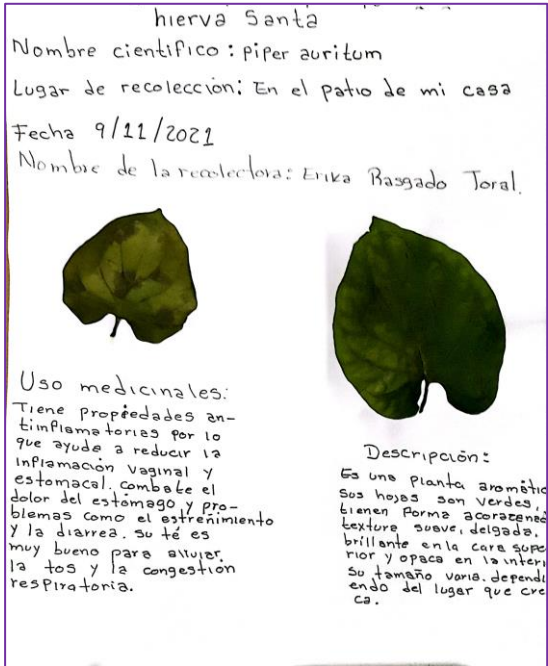 hierva Santa
Nombre cientifico: piper auritum
Lugar de recolección: En el patio de mi casa
Fecha 9/11/2021
Nombre de la recolectora: Erika Rasgado Toral.
Uso medicinales:
Tiene propiedades an-
tinflamatorias por lo
que ayuda a reducir la
inflamación vaginal y
estomacal. combate el
dolor del estómago y pro-
blemas como el estreñimiento
y la diarrea. su té es
muy bueno para aliviar
la tos y la congestión
respiratoria.
Descripción:
Es una planta aromátic
Sus hojas son verdes,
tienen forma acorazonad
textura suave, delgada.
brillante en la cara supe
rior y opaca en la interi
Su tamaño varia. dependi
endo del lugar que cre
ca.